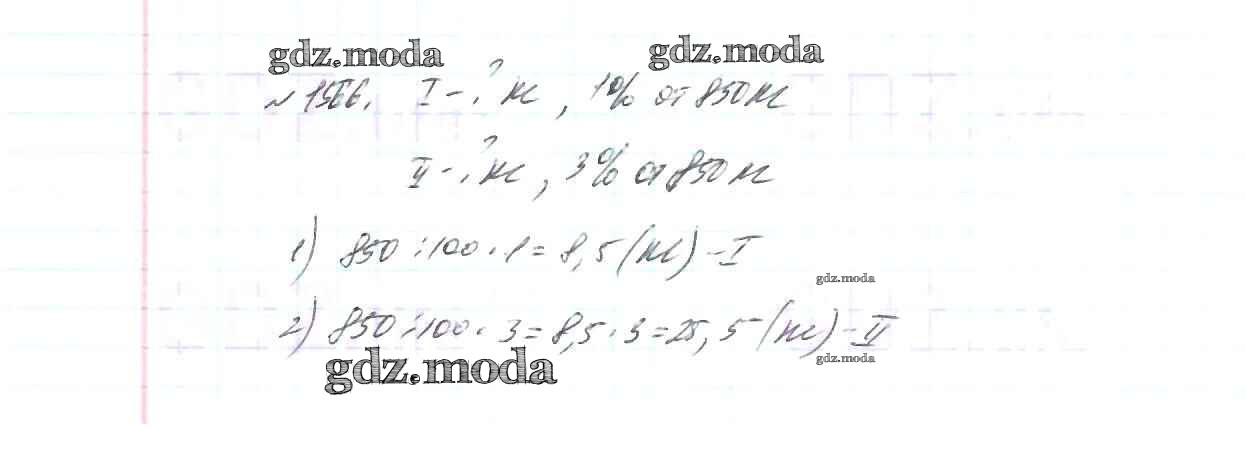 gdz.moda gdz.moda
№ 1566. I - ? кг, 1% от 850 кг
II - ? кг, 3% от 850 кг
1) 850 : 100 · 1 = 8,5 (кг) - I
gdz.moda
2) 850 : 100 · 3 = 8,5 · 3 = 25,5 (кг) - II
gdz.moda gdz.moda